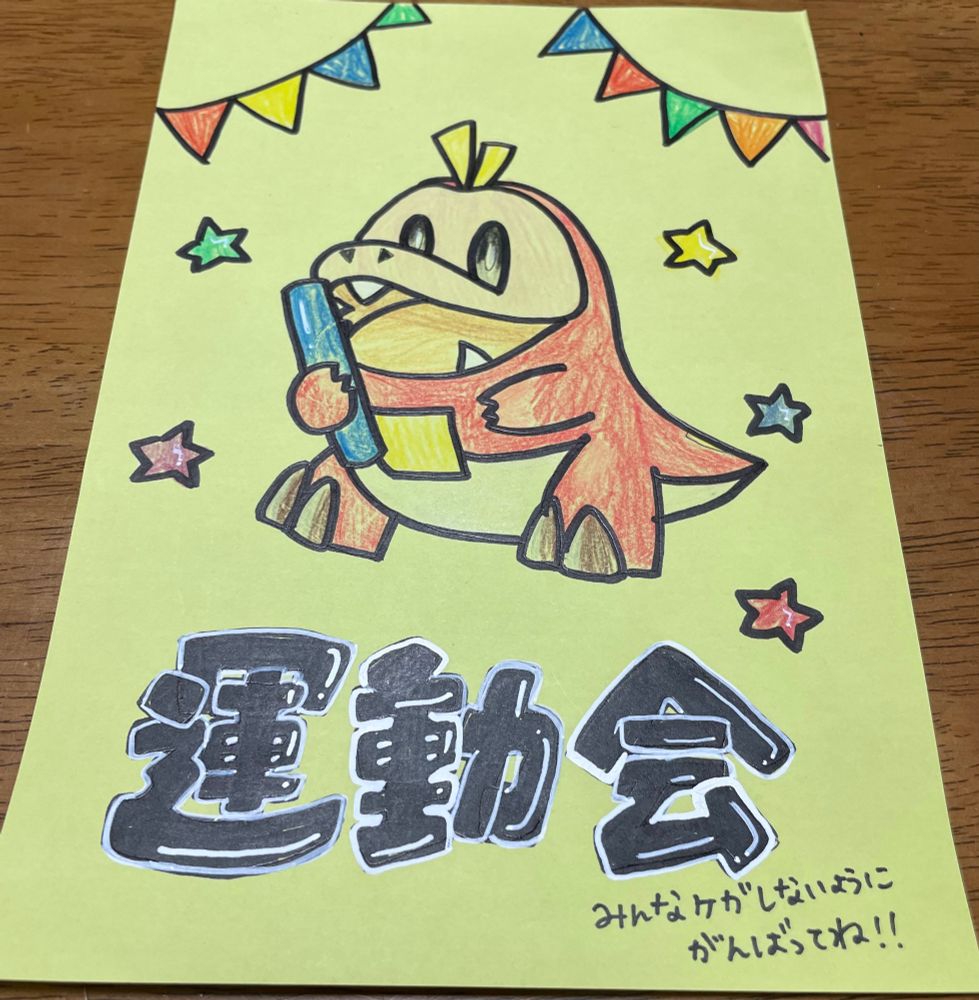 運動会
みんなケガしないように
がんばってね!!